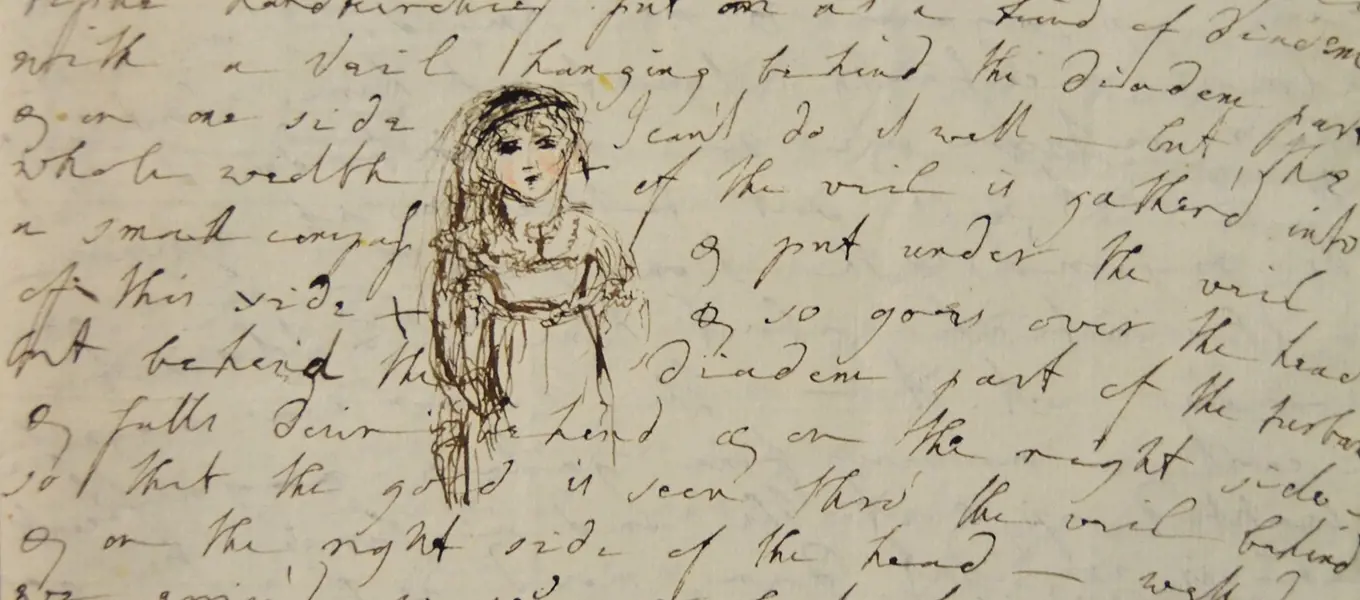 handkerchief put on as a kind of diadem
with a Veil hanging behind the diadem part
& on one side I can't do it well — but the
whole width of the veil is gatherd into
a small compass & put under the veil
of this side + & so goes over the head
but behind the Diadem part of the turban
& falls down behind & on the right side
so that the gold is seen thro' the veil behind
& on the right side of the head — well